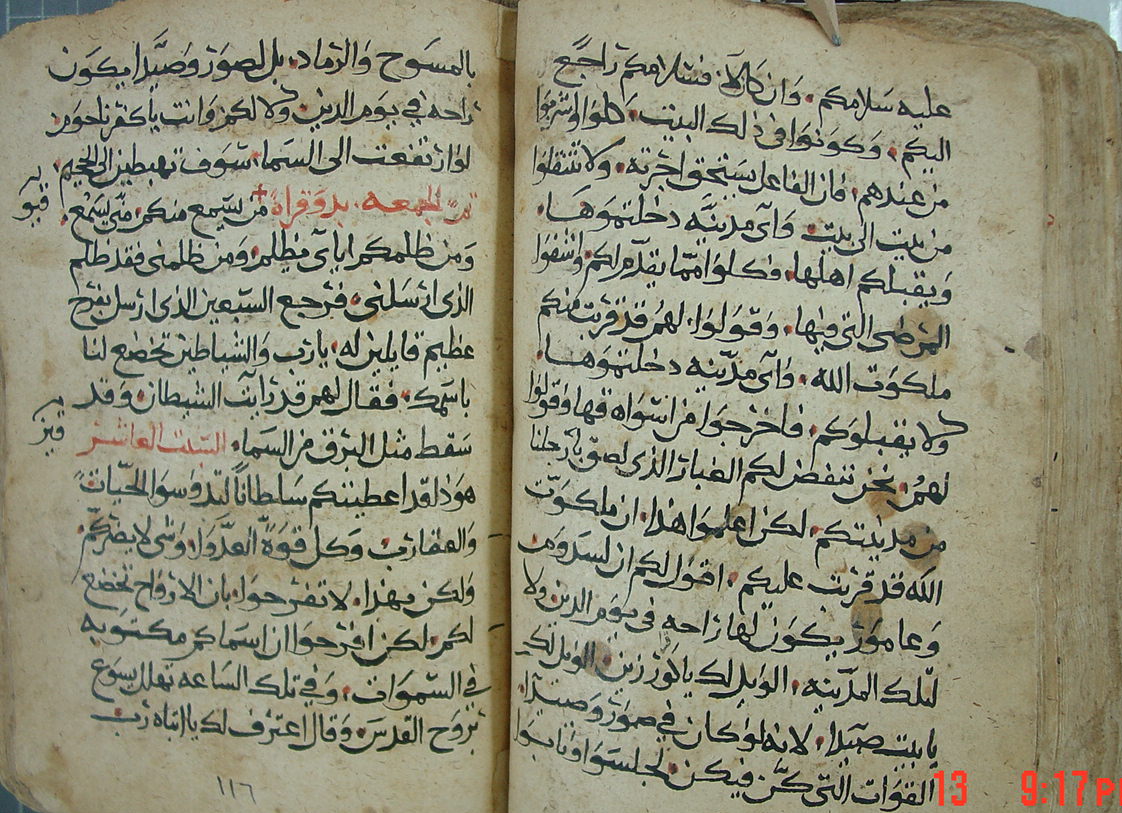 عليه سلامكم. وان كان لا فسلامكم راجع
اليكم. وكونوا في ذلك البيت. كلوا واشربوا
من عندهم. فان الفاعل يستحق اجرته. ولا تنتقلوا
من بيت الى بيت. واي مدينه دخلتموها.
ويقبلكم اهلها. فكلوا مما يقدم لكم. واشفوا
المرضى التي فيها. وقولوا. لهم قد قربت منكم
ملكوت الله. واي مدينه دخلتموها.
ولا يقبلوكم. فاخرجوا من اسواقها وقولوا
لهم. نحن ننفض لكم الغبار الذي لصق بارجلنا
من مدينتكم. لكن اعلموا هذا. ان ملكوت
الله قد قربت عليكم. اقول لكم ان لسدوم
وعامور يكون لها راحه في يوم الدين ولا
لتلك المدينه. الويل لك يا كورزين. الويل لك
يا بيت صيدا. لانه لو كان في صور وصيدا.
القوات التي كن فيكن. لجلسوا وتابوا
بالمسوح والرماد. بل لصور وصيدا يكون
راحه في يوم الدين ولا لكن وانت يا كفرناحوم.
لو ارتفعت الى السما. سوف تهبطين الى الجحيم
من الجمعه. بدو قراه + من يسمع منكم. مني يسمع.
ومن ظلمكم اياي يظلم. ومن ظلمني فقد ظلم
الذي ارسلني. فرجع السبعين الذي ارسل بفرح
عظيم قايلين له. يا رب والشياطين تخضع لنا
باسمك. فقال لهم قد رايت الشيطان. وقد
سقط مثل البرق من السما. السبت العاشر
هوذا لقد اعطيتكم سلطانا لتدوسوا الحيات
والعقارب وكل قوة العدوا. وشي لا يضركم.
ولكن بهذا. لا تفرحوا. بان الارواح تخضع
لكم. لكن افرحوا ان اسماكم مكتوبه
في السموات. وفي تلك الساعه تهلل يسوع
بروح القدس. وقال اعترف لك يا ابتاه رب
١١٦
13 9:17